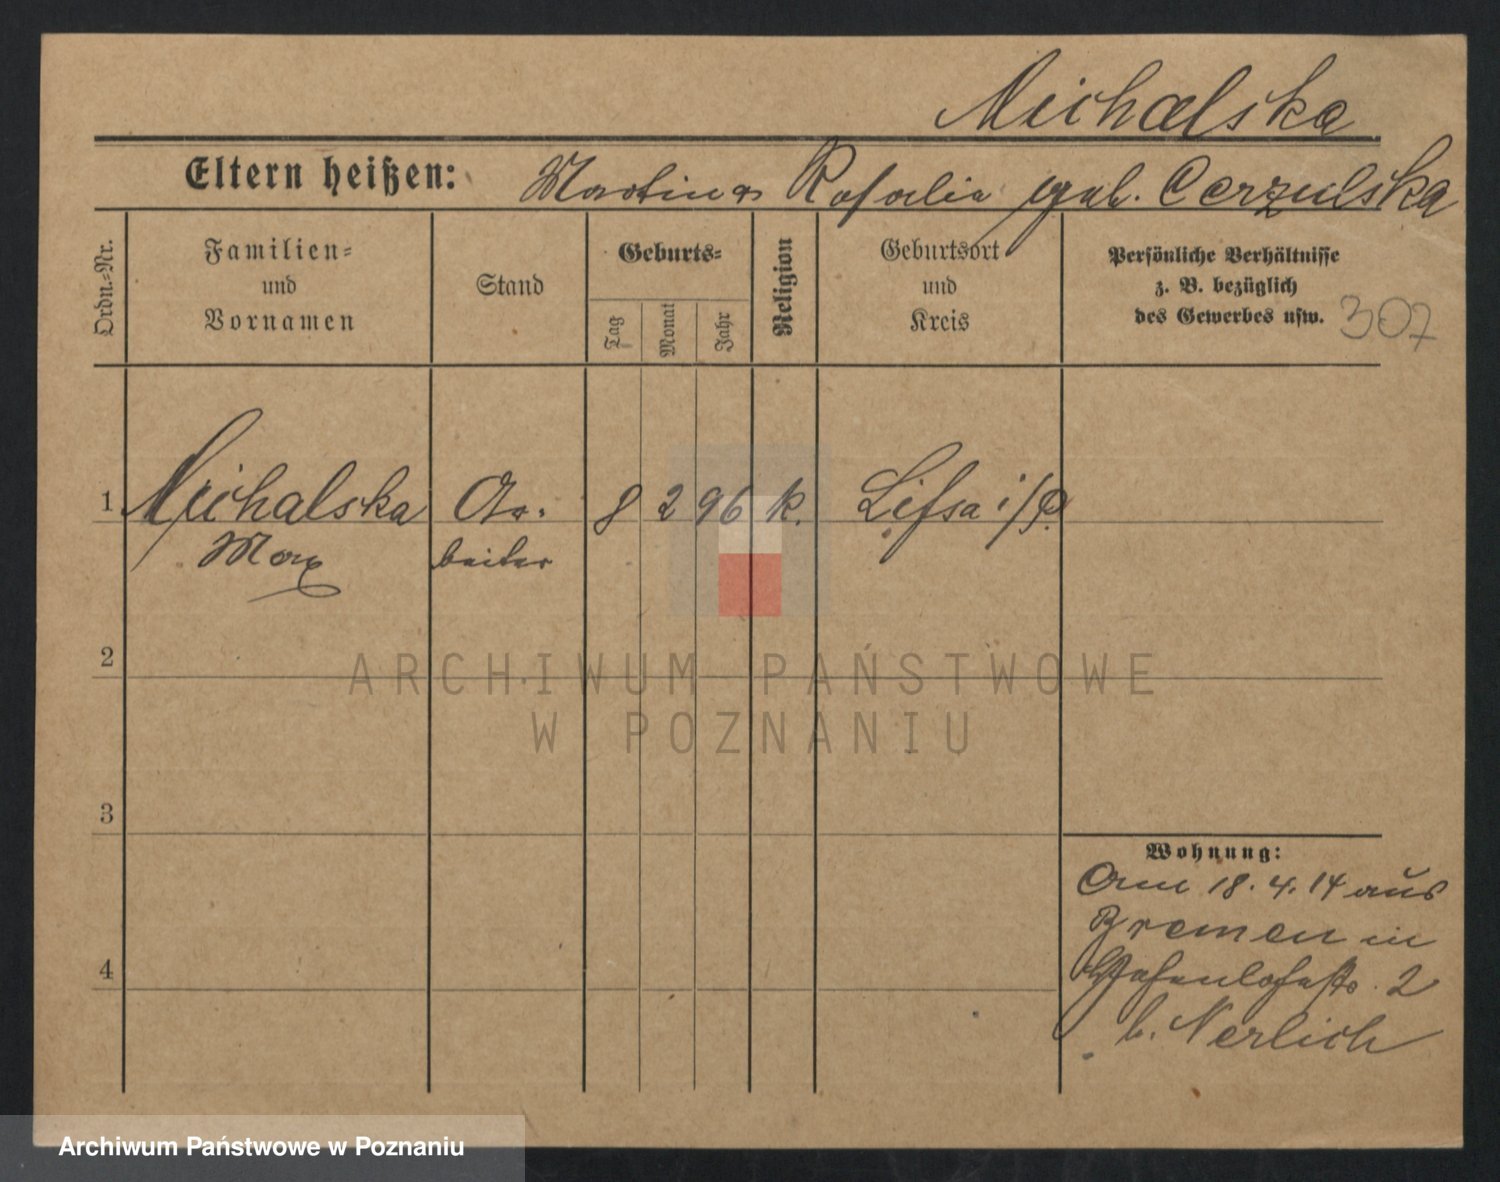 Michalska
Eltern heißen: Martin u Rosalia geb. Cerzulska
Ordn.=Nr.
Familien=
und
Vornamen
Stand
Geburts=
Tag
Monat
Jahr
Religion
Geburtsort
und
Kreis
Persönliche Verhältnisse
z. B. bezüglich
des Gewerbes usw.
307
1 Michalska Ar- 8 2 96 k. Lissa i/P.
Max beiter
2
ARCHIWUM PAŃSTWOWE
W POZNANIU
3
Wohnung:
Am 18. 4. 14 aus
Bremen in
4
2
b. Nerlich
Archiwum Państwowe w Poznaniu